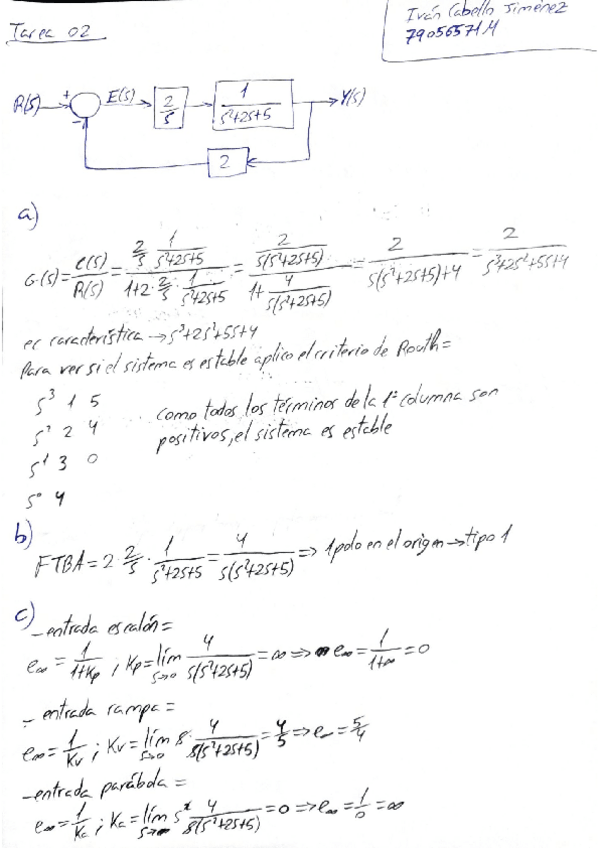 Tarea 02
Iván Cabello Jiménez
79056571M
R(s) + - E(s) 2/s 1/(s²+2s+5) Y(s)
2
a)
G(s) = C(s)/R(s) = (2/s · 1/(s²+2s+5))/(1+2·2/s·1/(s²+2s+5)) = (2/(s(s²+2s+5)))/(1+4/(s(s²+2s+5))) = 2/(s(s²+2s+5)+4) = 2/(s³+2s²+5s+4)
ec característica → s³+2s²+5s+4
Para ver si el sistema es estable aplico el criterio de Routh=
s³ 1 5
s² 2 4
s¹ 3 0
s⁰ 4
como todos los términos de la 1ª columna son
positivos, el sistema es estable
b)
FTBA = 2 · 2/s · 1/(s²+2s+5) = 4/(s(s²+2s+5)) ⇒ 1 polo en el origen → tipo 1
c)
- entrada escalón =
e∞ = 1/(1+Kp) ; Kp = lím s→0 4/(s(s²+2s+5)) = ∞ ⇒ e∞ = 1/(1+∞) = 0
- entrada rampa =
e∞ = 1/Kv ; Kv = lím s→0 s · 4/(s(s²+2s+5)) = 4/5 ⇒ e∞ = 5/4
- entrada parábola =
e∞ = 1/Ka ; Ka = lím s→∞ s² 4/(s(s²+2s+5)) = 0 ⇒ e∞ = 1/0 = ∞